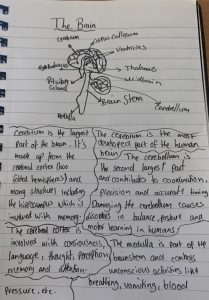 The Brain
cerebrum
corpus callosum
Ventricles
Hypothalamus
Thalamus
Pituitary
Gland
midbrain
Medulla
Brain Stem
cerebellum
Cerebrum is the largest
part of the brain. It's
made up from the
cerebral cortex (two
folded hemispheres) and
many structures including
the hippocampus which is
involved with memory.
The cerebral cortex is
involved with consciousness,
language, thought, perception,
memory and attention.
The cerebrum is the most
developed part of the human
brain.
The cerebellum is
the second largest part
and contributes to coordination,
precision and accurate timing.
Damaging the cerebellum causes
disorders in balance, posture and
motor learning in humans.
The medulla is part of the
brainstem and controls
unconscious activities like
breathing, vomiting, blood
pressure, etc.